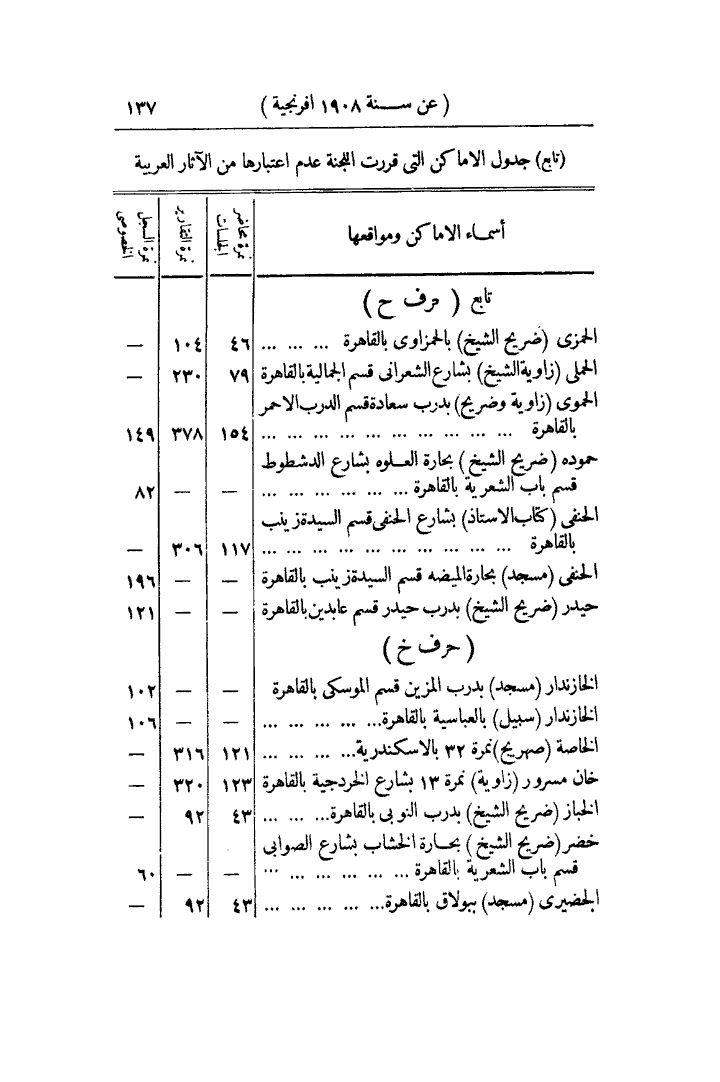 ( عن سنة ١٩٠٨ افرنجية ) ١٣٧
(تابع) جدول الاماكن التى قررت اللجنة عدم اعتبارها من الآثار العربية
أسماء الاماكن ومواقعها | نمرة محاضر الجلسات | نمرة التقارير | نمرة السجل الخصوصى
تابع ( حرف ح )
الحمزى (ضريح الشيخ) بالحمزاوى بالقاهرة ... ... ... ٤٦ ١٠٤ —
الحملى (زاوية الشيخ) بشارع الشعرانى قسم الجمالية بالقاهرة ٧٩ ٢٣٠ —
الحموى (زاوية وضريح) بدرب سعادة قسم الدرب الاحمر
بالقاهرة ... ... ... ... ... ... ... ... ... ... ١٥٤ ٣٧٨ ١٤٩
حموده (ضريح الشيخ) بحارة العلوه بشارع الدشطوط
قسم باب الشعرية بالقاهرة ... ... ... ... ... ... — — ٨٢
الحنفى (كتاب الاستاذ) بشارع الحنفى قسم السيدة زينب
بالقاهرة ... ... ... ... ... ... ... ... ... ... ١١٧ ٣٠٦ —
الحنفى (مسجد) بحارة الميضه قسم السيدة زينب بالقاهرة — — ١٩٦
حيدر (ضريح الشيخ) بدرب حيدر قسم عابدين بالقاهرة — — ١٢١
( حرف خ )
الخازندار (مسجد) بدرب المزين قسم الموسكى بالقاهرة — — ١٠٢
الخازندار (سبيل) بالعباسية بالقاهرة... ... ... ... ... — — ١٠٦
الخاصة (صهريج) نمرة ٣٢ بالاسكندرية... ... ... ... ١٢١ ٣١٦ —
خان مسرور (زاوية) نمرة ١٣ بشارع الخردجية بالقاهرة ١٢٣ ٣٢٠ —
الخباز (ضريح الشيخ) بدرب النوبى بالقاهرة... ... ... ٤٣ ٩٢ —
خضر (ضريح الشيخ) بحارة الخشاب بشارع الصوابى
قسم باب الشعرية بالقاهرة ... ... ... ... ... ... — — ٦٠
الخضيرى (مسجد) ببولاق بالقاهرة... ... ... ... ... ٤٣ ٩٢ —